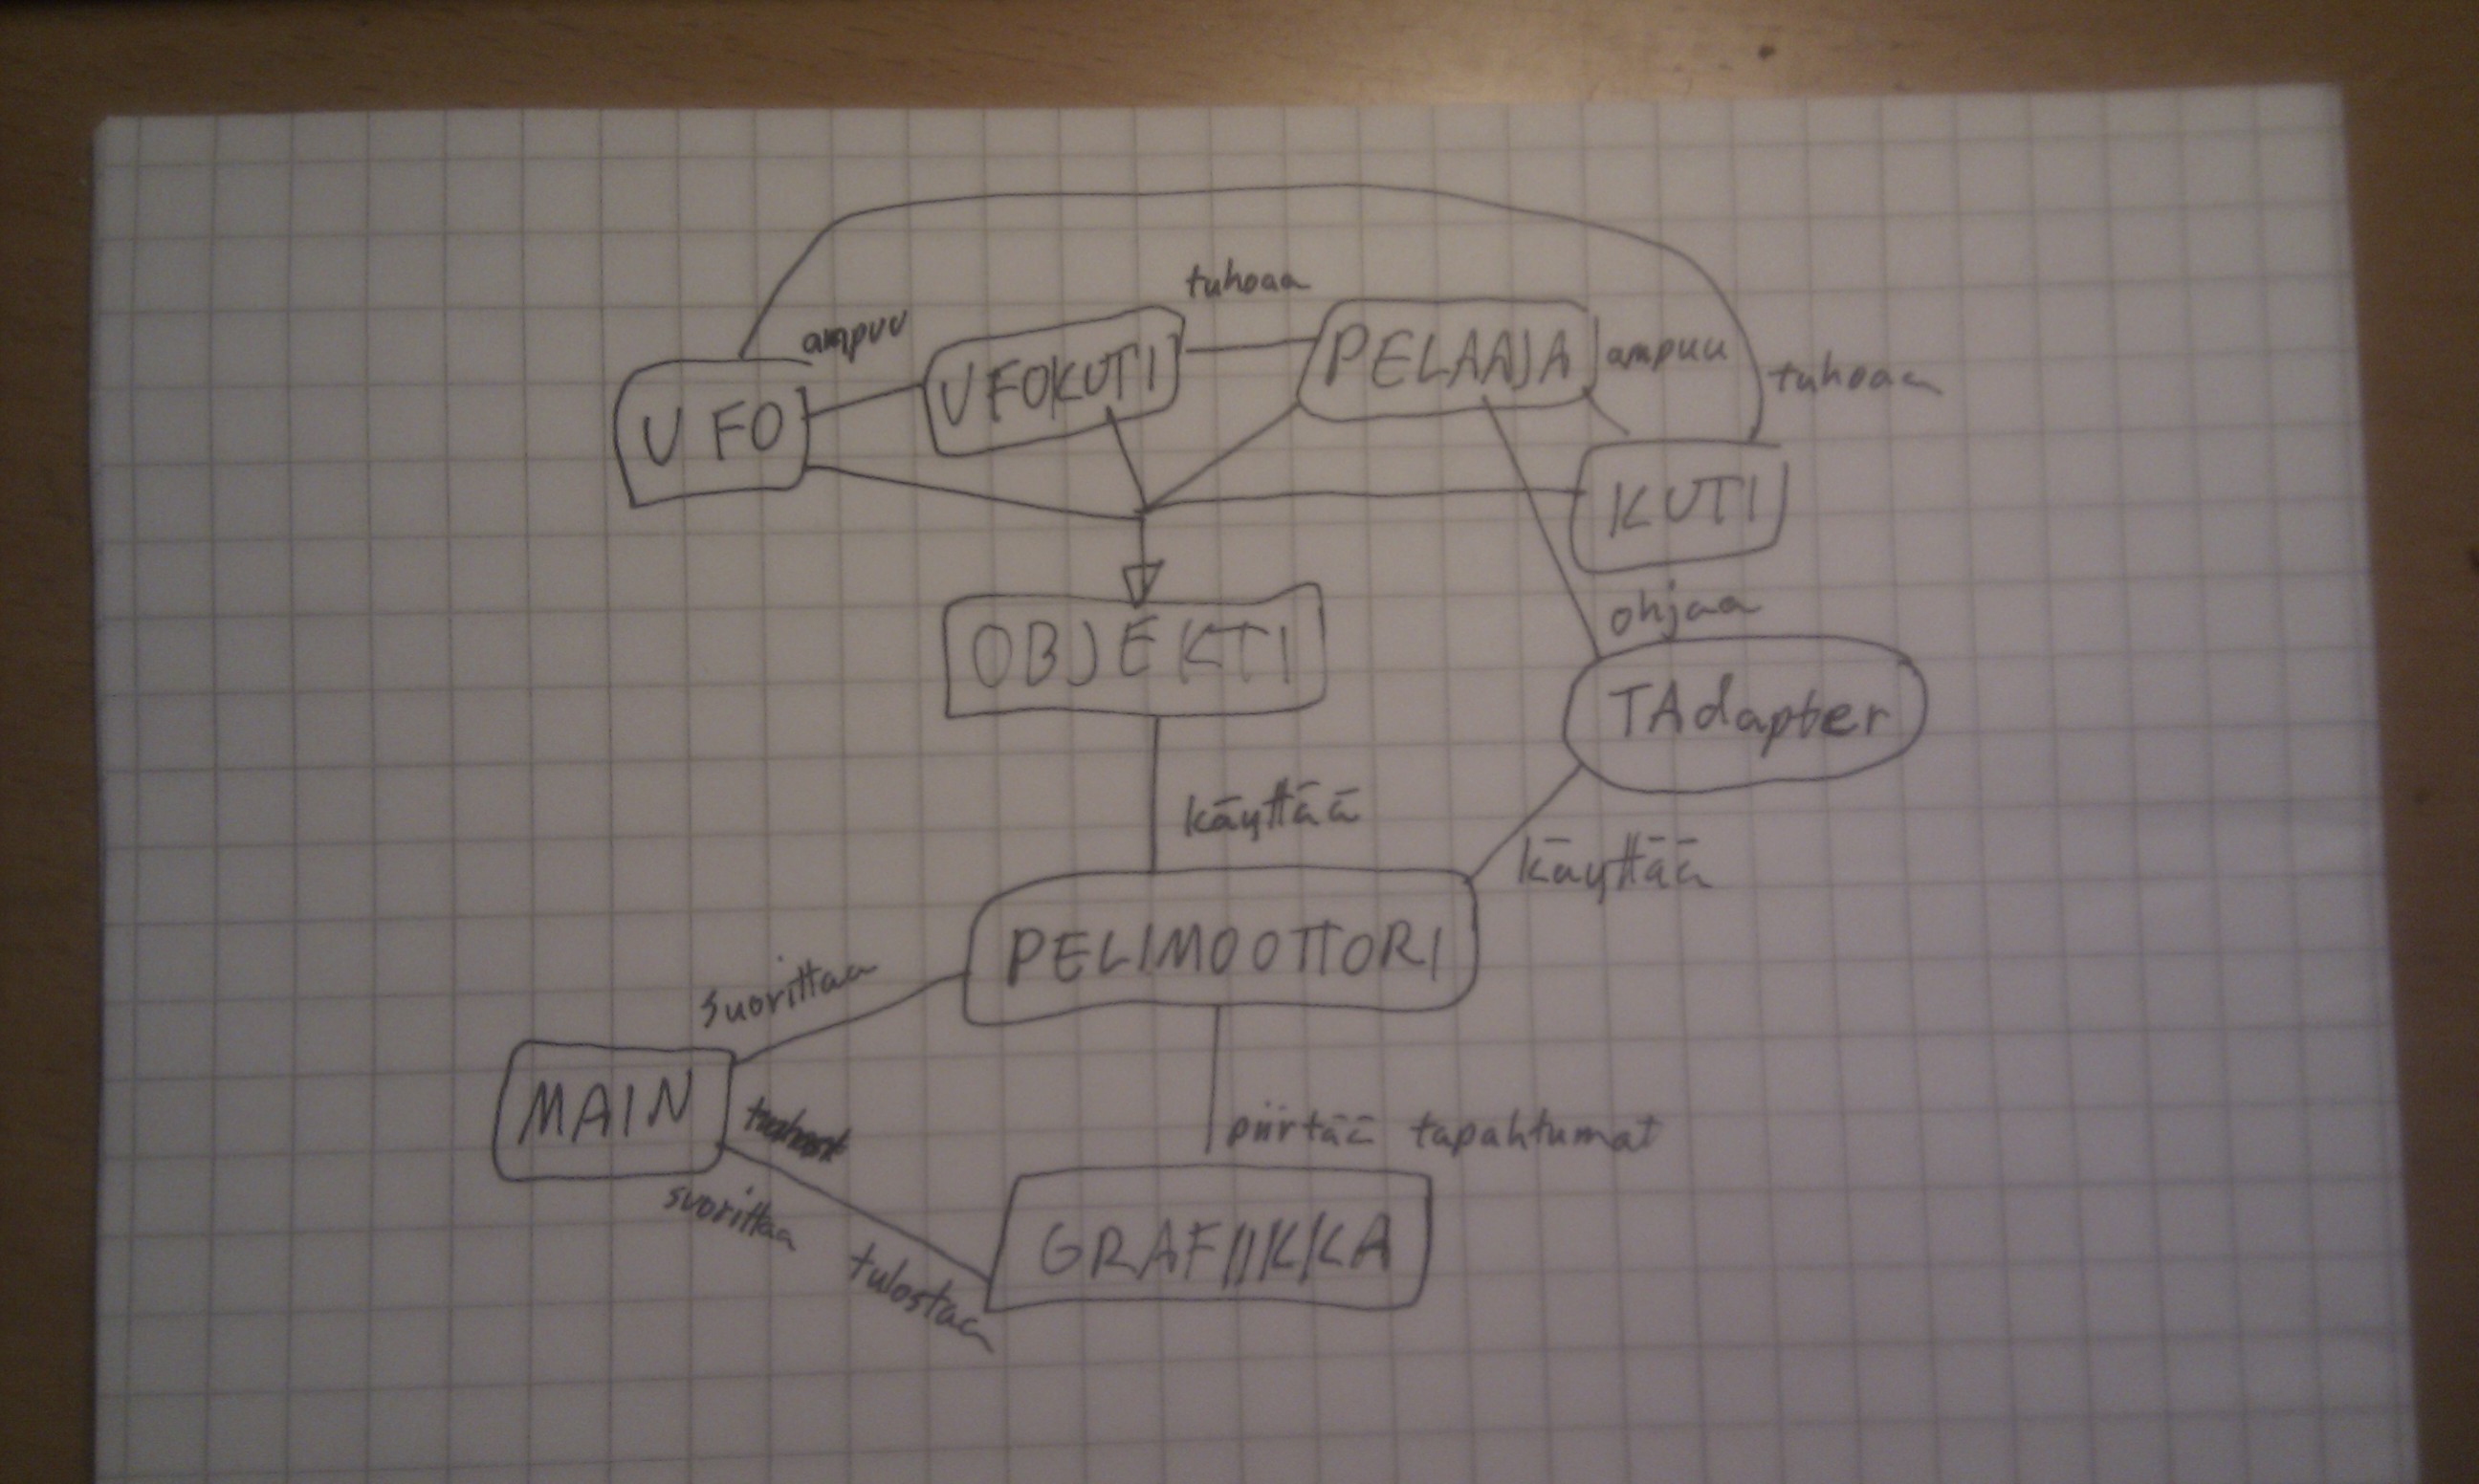 tuhoaa
ampuu
UFO
UFOKUTI
PELAAJA
ampuu
tuhoaa
KUTI
OBJEKTI
ohjaa
TAdapter
käyttää
käyttää
PELIMOOTTORI
suorittaa
MAIN
piirtää tapahtumat
suorittaa
tulostaa
GRAFIIKKA